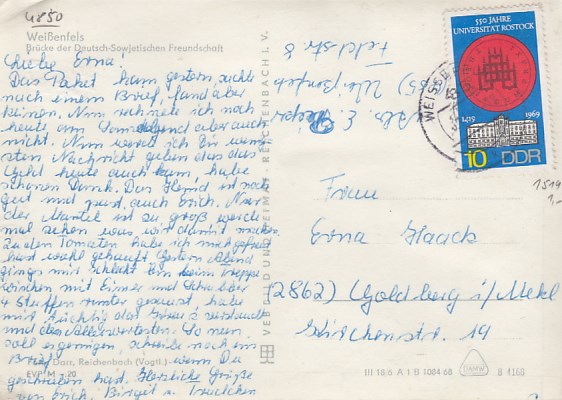 4850
Weißenfels
Brücke der Deutsch-Sowjetischen Freundschaft
Liebe Erna!
Das Paket kam gestern, suchte
nach einem Brief, fand aber
keinen. Nun rechnete ich noch
heute am Sonnabend aber auch
nicht. Nun werd ich Dir
Nachricht geben das das
Geld heute auch kam, habe
schönen Dank. Das Hemd ist noch
gut und passt auch Erich. Nur
der Mantel ist zu groß werde
mal sehen was wir damit machen
Zu den Tomaten habe ich mich gefreut
hast wohl gekauft. Gestern Abend
gings mir schlecht beim Treppe
wischen mit Eimer und Schrubber
4 Stuffen runter gesaust, habe
mir tüchtig das
den Allerwertesten. So nun
soll es genügen, schreibe noch ein
Brief wenn Du
geschrieben hast. Herzliche Grüße
von Erich, Birgit u. Traudchen
Foto: Darr, Reichenbach (Vogtl.)
EVP M -,20
VEB BILD UND HEIMAT REICHENBACH I. V.
Abs. E.
(485) Weißenfels
Feldstr. 8
550 JAHRE
UNIVERSITÄT ROSTOCK
1419
1969
10 DDR
1514
1,-
Frau
Erna Haack
(2862) Goldberg i/Mekl
Lärchenstr. 19
III 18/6 A 1 B 1084 68
B 4168